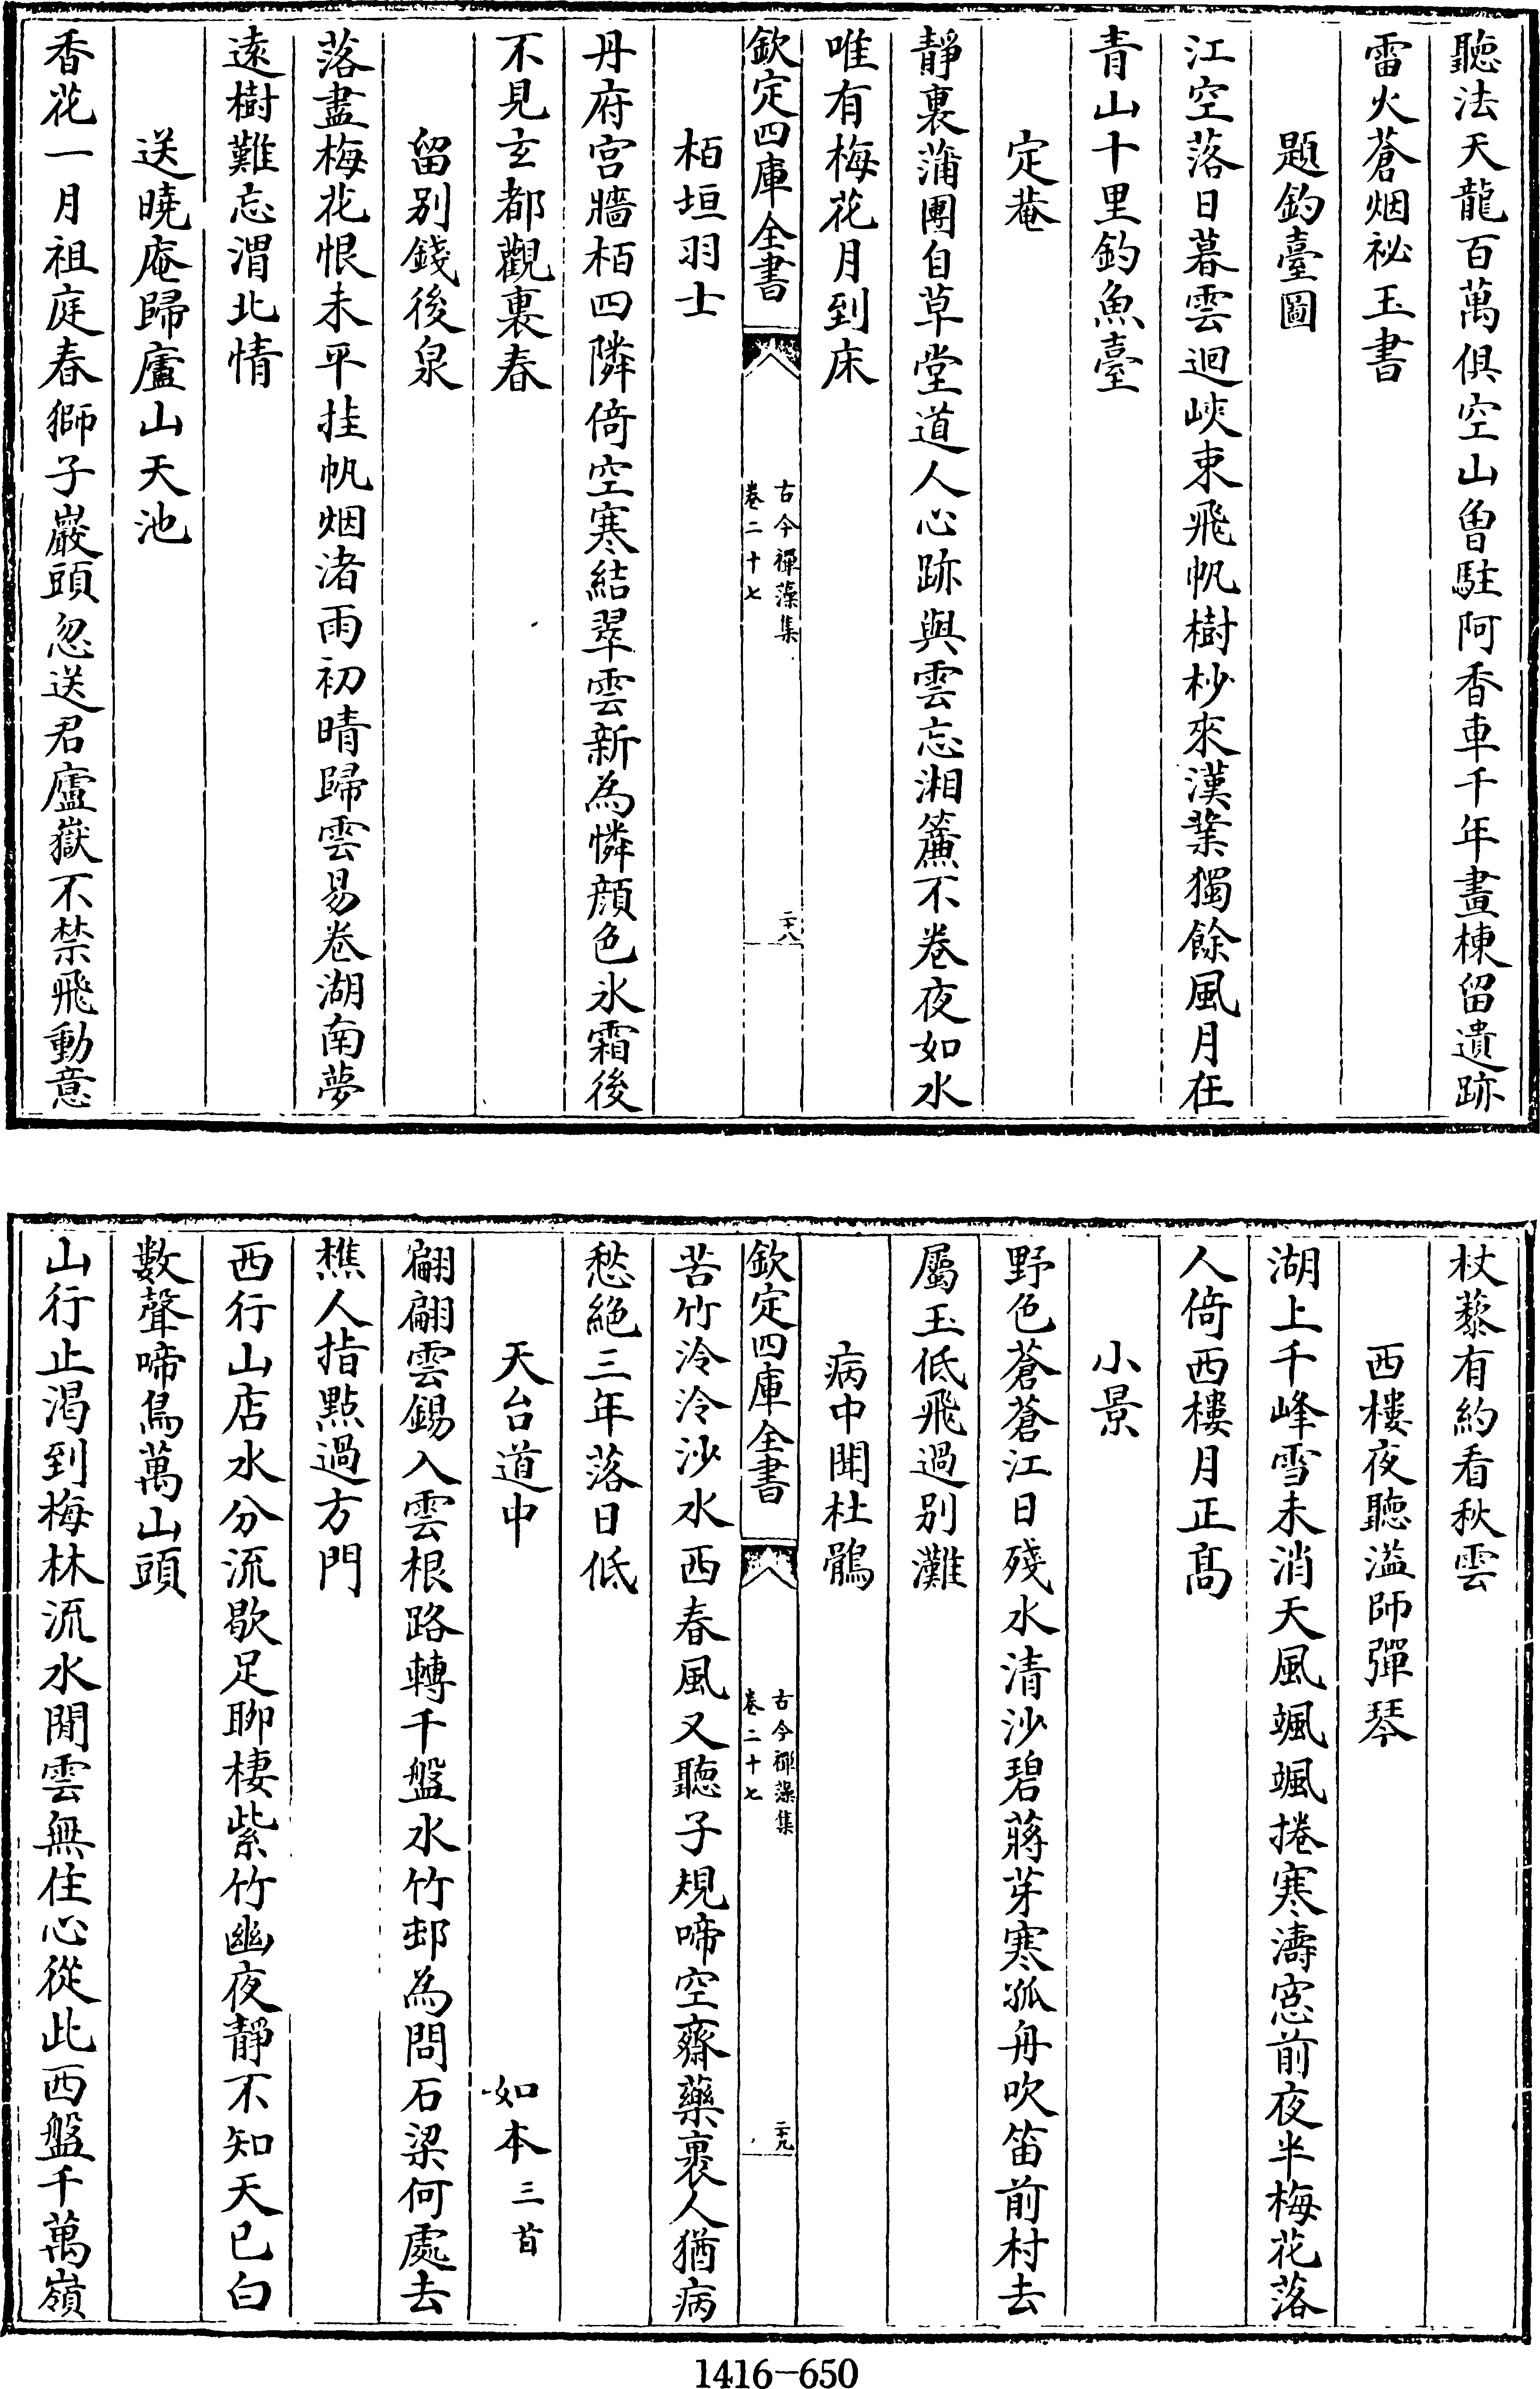 聽法天龍百萬俱空山曾駐阿香車千年畫棟留遺跡
雷火蒼烟祕玉書
題釣臺圖
江空落日暮雲迴峽束飛帆樹杪來漢業獨餘風月在
青山十里釣魚臺
定菴
靜裏蒲團自草堂道人心跡與雲忘湘簾不卷夜如水
唯有梅花月到床
欽定四庫全書
古今禪藻集
卷二十七
二十八
栢垣羽士
丹府宮牆栢四隣倚空寒結翠雲新為憐顔色氷霜後
不見玄都觀裏春
留别錢後泉
落盡梅花恨未平挂帆烟渚雨初晴歸雲易卷湖南夢
遠樹難忘渭北情
送曉庵歸廬山天池
香花一月祖庭春獅子巖頭忽送君廬嶽不禁飛動意
杖藜有約看秋雲
西樓夜聽溢師彈琴
湖上千峰雪未消天風颯颯捲寒濤窓前夜半梅花落
人倚西樓月正高
小景
野色蒼蒼江日殘水清沙碧蔣芽寒孤舟吹笛前村去
屬玉低飛過别灘
病中聞杜鵑
苦竹泠泠沙水西春風又聽子規啼空齋藥裹人猶病
愁絶三年落日低
欽定四庫全書
古今禪藻集
卷二十七
二十九
天台道中
如本三首
翩翩雲錫入雲根路轉千盤水竹邨為問石梁何處去
樵人指點過方門
西行山店水分流歇足聊棲紫竹幽夜靜不知天已白
數聲啼鳥萬山頭
山行止渴到梅林流水閒雲無住心從此西盤千萬嶺
1416-650